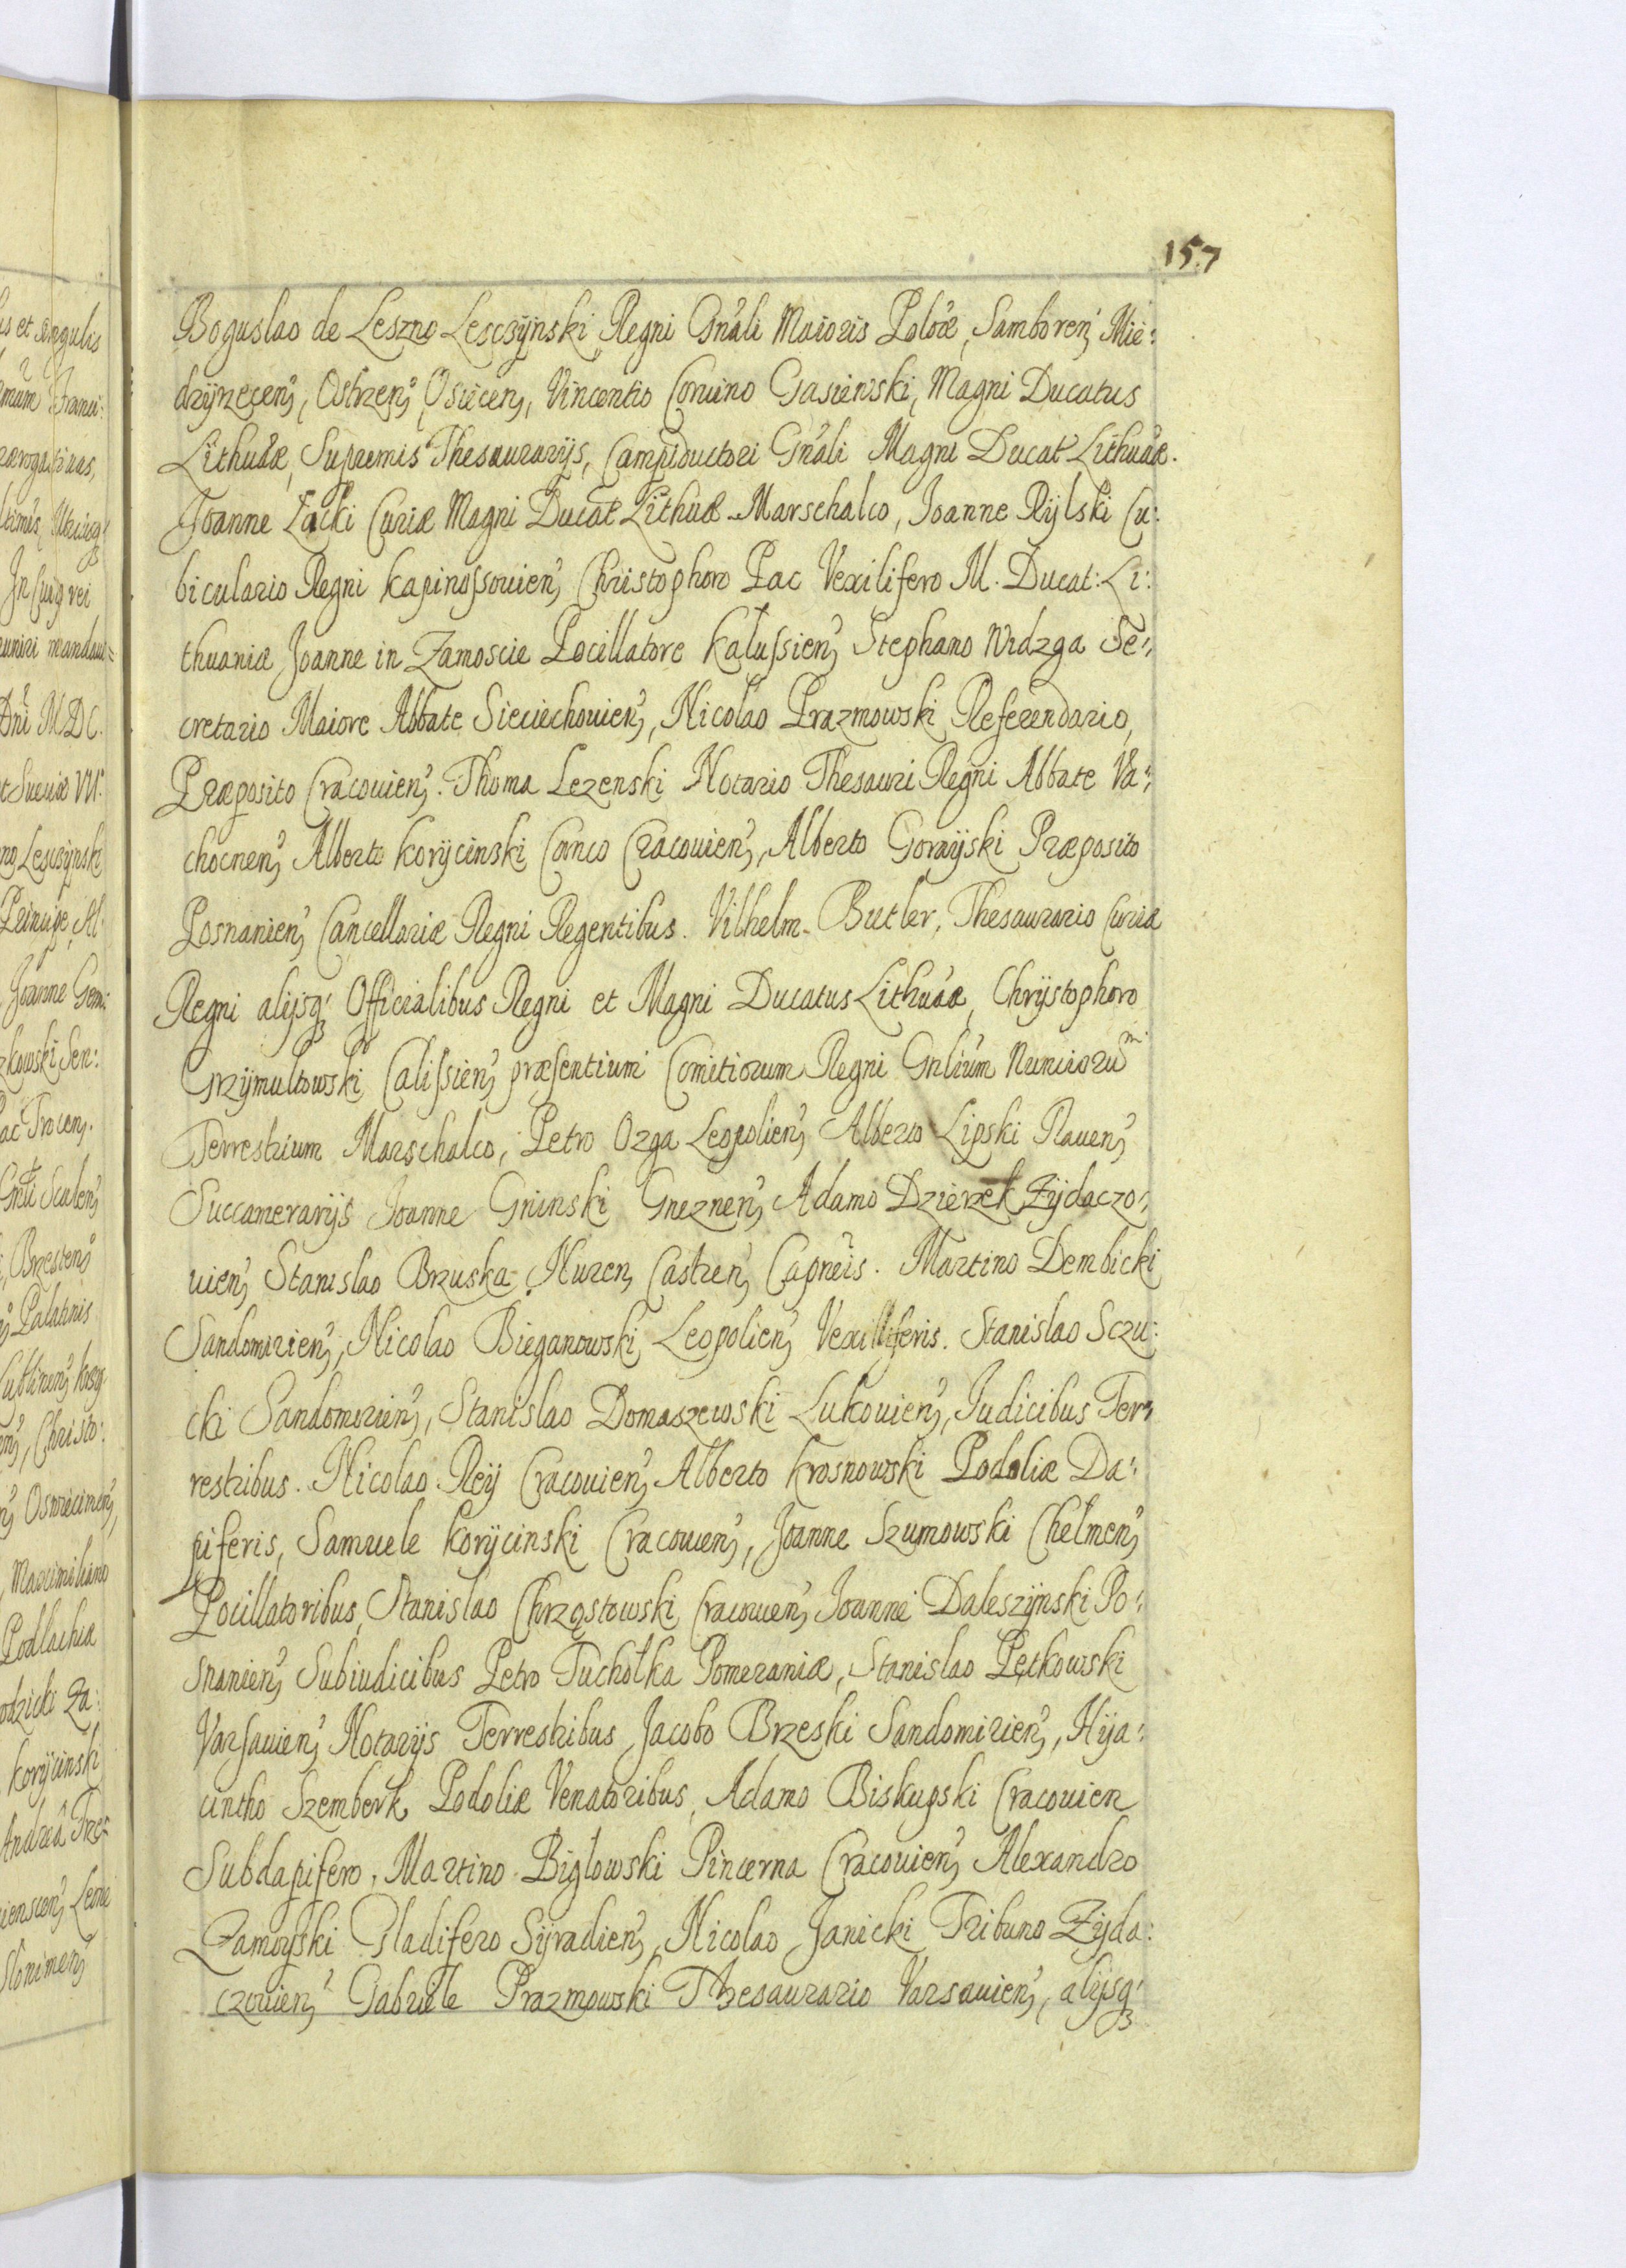 157
Boguslao de Leszno Lesczÿnski Regni Gnãli Maioris Poloæ, Samboreñ Mie:
dzÿrzeceñ, Ostrzeñ, Osieceñ, Vincentio Coruino Gasiewski, Magni Ducatus
Lithuãæ, Supremis Thesaurarÿs, Campiductori Gnãli Magni Ducat Lithuãæ.
Joanne Łacki Curiæ Magni Ducat Lithuæ Marschalco, Joanne Rÿlski Cu:
biculario Regni Kapinossouieñ, Christophoro Pac Vexilifero M. Ducat: Li:
thuaniæ Joanne in Zamoscie Pocillatore Kalussieñ, Stephano Widzga Se:
cretario Maiore Abbate Sieciechouieñ, Nicolao Prazmowski Referendario,
Præposito Cracouieñ. Thoma Lezenski Notario Thesauri Regni Abbate Va:
chocneñ, Alberto Korÿcinski Canco Cracouieñ, Alberto Goraÿski Præposito
Posnanieñ, Cancellariæ Regni Regentibus. Vilhelm. Butler, Thesaurario Curiæ
Regni alÿsq; Officialibus Regni et Magni Ducatus Lithuãæ, Chrÿstophoro
Grzÿmultowski Calissieñ, præsentium Comitiorum Regni Gnlium Nuncioru^m
Terrestrium Marschalco, Petro Ozga Leopolieñ, Alberto Lipski Raueñ,
Succamerarÿs Joanne Gninski Gnezneñ, Adamo Dzierzek Zÿdaczo:
uieñ, Stanislao Bruska Nureñ, Castreñ, Capneis. Martino Dembicki
Sandomirieñ, Nicolao Bieganowski Leopolieñ, Vexilliferis. Stanislao Sczu:
cki Sandomirieñ, Stanislao Domaszewski Lukouieñ, Iudicibus Ter:
restribus. Nicolao Reÿ Cracouieñ, Alberto Krosnowski Podoliæ Da:
piferis, Samuele Korÿcinski Cracouieñ, Joanne Szumowski Chelmeñ,
Pocillatoribus, Stanislao Chrząstowski Cracouieñ, Joanne Daleszÿnski Po:
snanieñ, Subiudicibus Petro Tuchołka Pomeraniæ, Stanislao Pętkowski
Varsauieñ, Notarÿs Terrestribus Jacobo Brzeski Sandomirieñ, Hÿa:
cintho Szemberk Podoliæ Venatoribus, Adamo Biskupski Cracouien
Subdapifero, Martino Biglowski Pincerna Cracouieñ, Alexandro
Zamoÿski Gladifero Sÿradieñ, Nicolao Janicki Tribuno Zÿda:
czouieñ, Gabriele Prazmowski Thesaurario Varsauieñ, alÿsq;